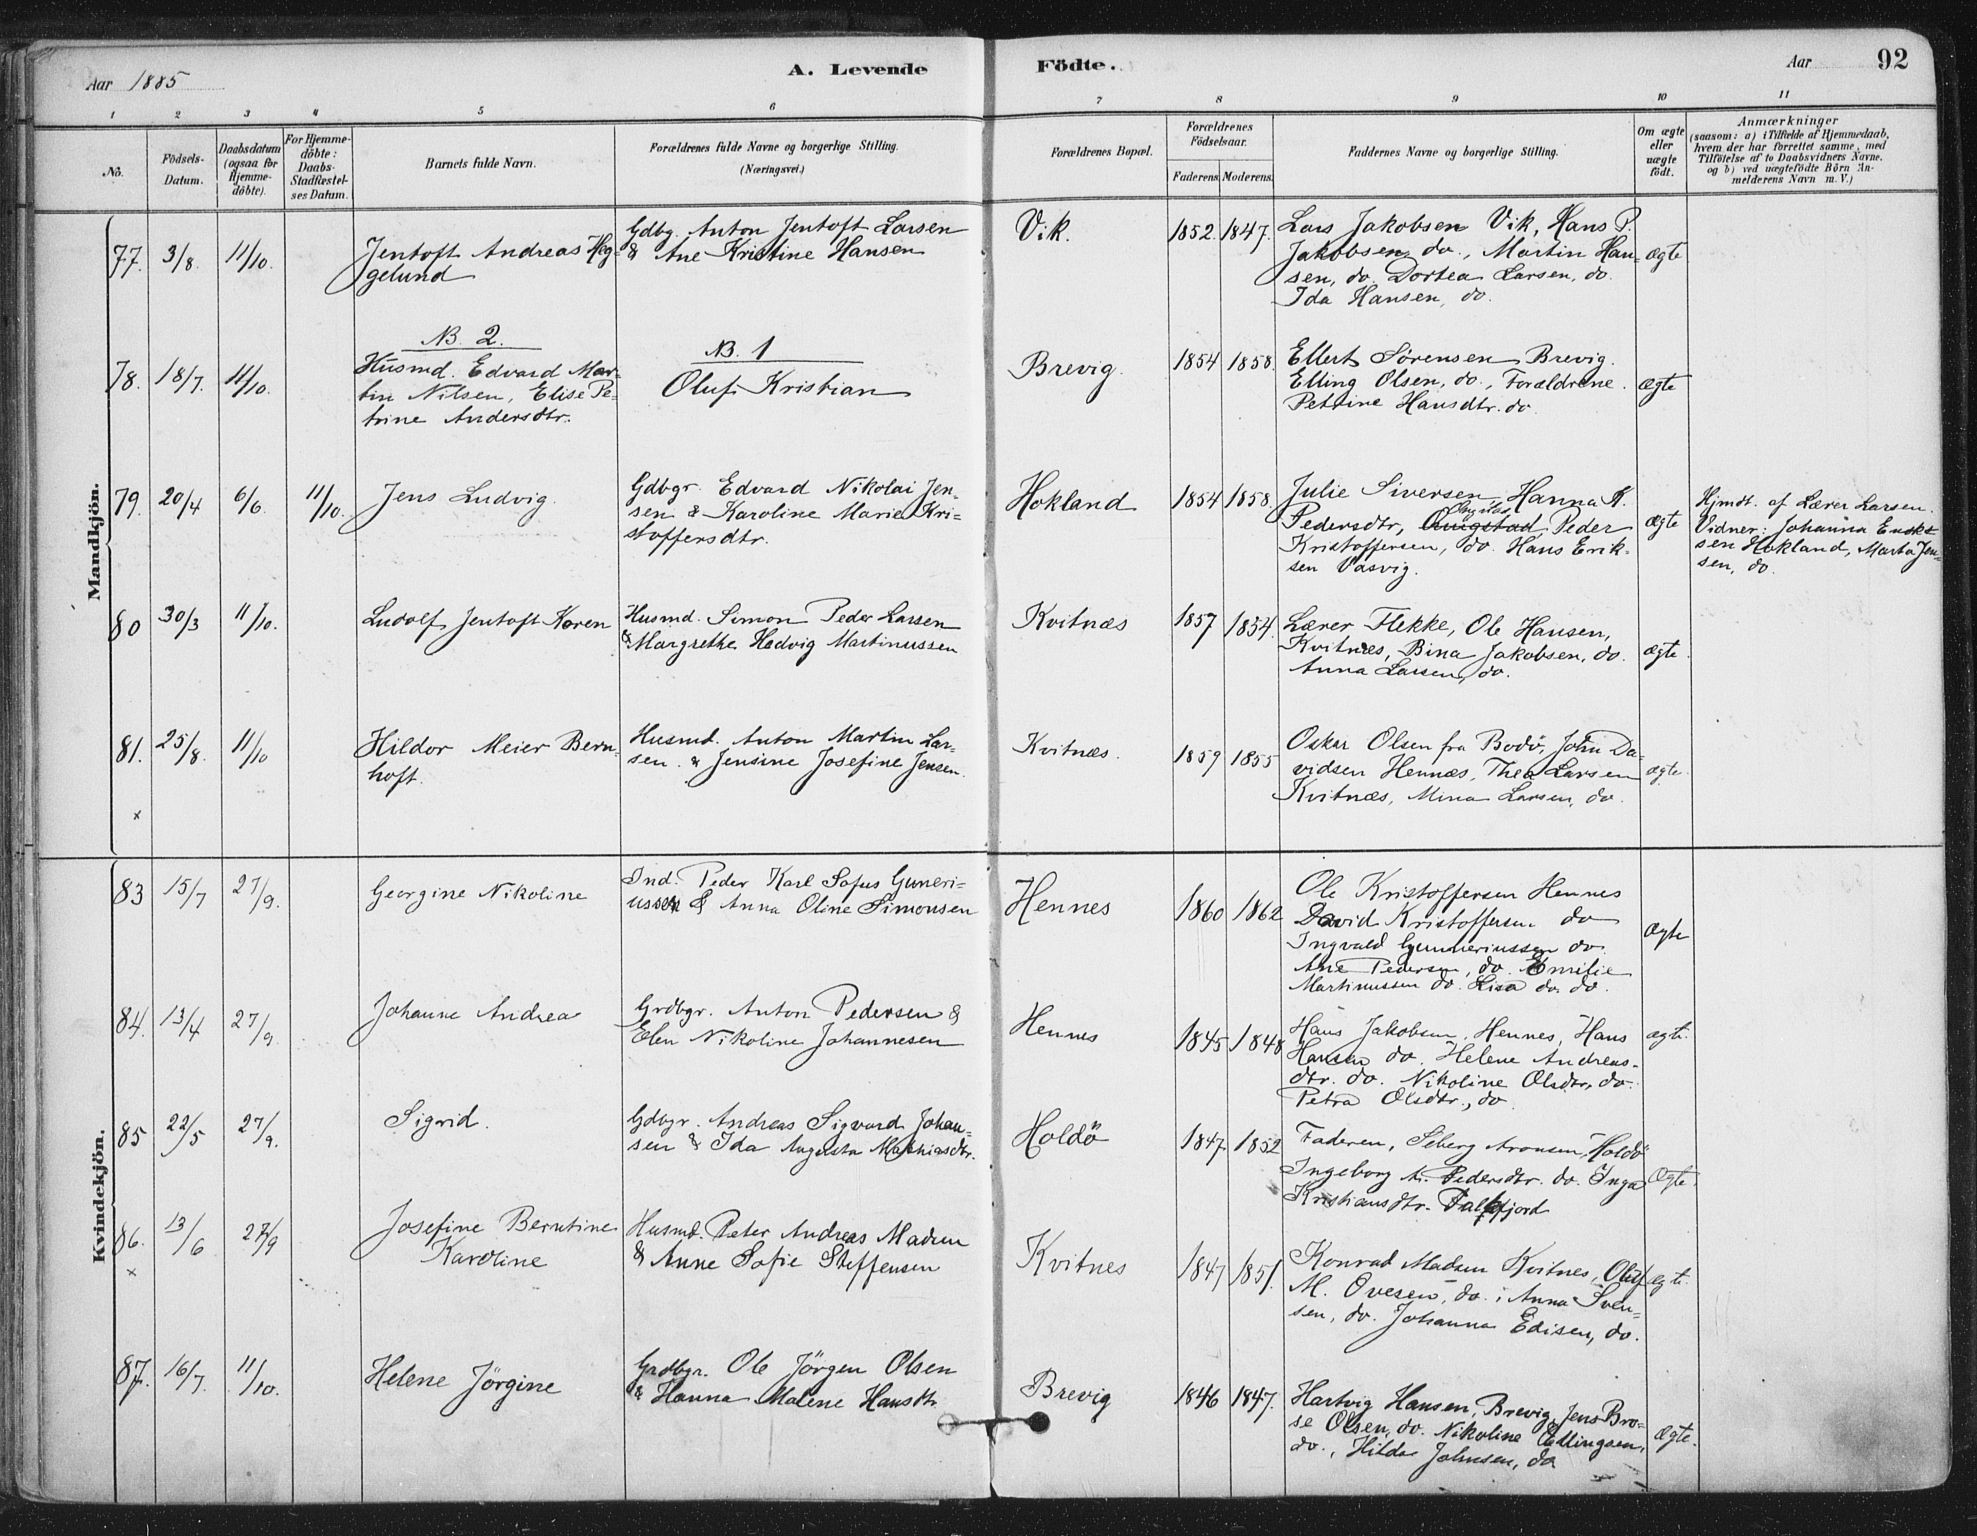 Aar 1885
A. Levende
Födte.
Aar
92
1 2 3 4 5 6 7 8 9 10 11
No.
Födsels-
Datum.
Daabsdatum
(ogsaa for
Hjemme-
döbte).
For Hjemme-
döbte:
Daabs-
Stadfæstel-
ses Datum.
Barnets fulde Navn.
Forældrenes fulde Navne og borgerlige Stilling.
(Næringsvei.)
Forældrenes Bopæl.
Forældrenes
Födselsaar.
Faderens.
Moderens.
Faddernes Navne og borgerlige Stilling.
Om ægte
eller
uægte
født.
Anmærkninger
(saasom: a) i Tilfælde af Hjemmedaab,
hvem der har forrettet samme, med
Tilföielse af to Daabsvidners Navne.
og b) ved uægtefödte Börn An-
melderens Navn m. V.)
Mandkjön.
77. 3/8. 11/10.
Jentoft Andreas Heg-
gelund
Gdbg. Anton Jentoft Larsen
& Ane Kristine Hansen
Vik.
1852. 1847.
Lars Jakobsen Vik, Hans P.
Jakobsen do., Martin Han-
sen, do. Dortea Larsen, do.
Ida Hansen, do.
ægte
78. 18/7. 11/10.
NB. 2.
Husmd. Edvard Mar-
tin Nilsen, Elise Pe-
trine Andersdtr.
NB. 1
Oluf Kristian
Brevig.
1854 1858.
Ellert Sørensen Brevig.
Elling Olsen, do., Forældrene.
Petrine Hansdtr. do.
ægte
79. 20/4 6/6. 11/10.
Jens Ludvig.
Gdbgr. Edvard Nikolai Jen-
sen & Karoline Marie Kri-
stoffersdtr.
Hokland
1854 1858.
Julie Siversen, Hanna K.
Pedersdtr, Peder
Kristoffersen, do. Hans Erik-
sen Vasvig.
ægte
Hjmdt. af Lærer Larsen.
Vidner: Johanna
sen Hokland, Marta Jen-
sen, do.
80 30/3 11/10.
Ludolf Jentoft Koren
Husmd. Simon Peder Larsen
& Margrethe Hedvig Martinussen
Kvitnæs
1857 1854.
Lærer Flekke, Ole Hansen,
Kvitnæs, Bina Jakobsen, do.
Anna Larsen, do.
ægte
81. 25/8. 11/10
x
Hildor Meier Bern-
hoft.
Husmd. Anton Martin Lar-
sen. & Jensine Josefine Jensen.
Kvitnæs.
1859 1855
Oskar Olsen fra Bodö, John Da-
vidsen Hennæs, Thea Larsen
Kvitnæs, Mina Larsen, do.
ægte.
Kvindekjön.
83 15/7 27/9.
Georgine Nikoline
Ind. Peder Karl Sofus Guneri-
ussen & Anna Oline Simonsen
Hennes
1860 1862
Ole Kristoffersen Hennes
David Kristoffersen do
Ingvald Gunneriussen do.
Ane Pedersen, do. Emilie
Martinussen do. Lisa do. do.
Ægte
84. 13/4 27/9.
Johanne Andrea
Grdbgr. Anton Pedersen &
Elen Nikoline Johannesen
Hennes
1845 1848
Hans Jakobsen, Hennes, Hans
Hansen do. Helene Andreas-
dtr. do. Nikoline Olsdtr, do.
Petra Olsdtr., do.
ægte.
85 22/5 27/9.
Sigrid.
Gdbgr. Andreas Sigvard Johan-
sen & Ida Augusta Mathiasdtr.
Holdö
1847 1852
Faderen, Seberg Aronsen, Holdö
Ingeborg A. Pedersdtr. do. Inga
Kristiansdtr. Falkfjord
Ægte.
86. 13/6 27/9
x
Josefine Berntine
Karoline
Husmd. Peter Andreas Madsen
& Anne Sofie Steffensen
Kvitnes
1847 1851.
Konrad Madsen Kvitnes, Oluf
M. Ovesen, do. ; Anna Sven-
sen, do. Johanna Edisen, do.
egte.
87. 16/7. 11/10.
Helene Jörgine
Grdbgr. Ole Jörgen Olsen
& Hanna Malene Hansdtr.
Brevig
1846 1847.
Hartvig Hansen, Brevig, Jens Bro-
se Olsen, do. Nikoline Ellingsen,
do., Hilda Johnsen, do
Ægte.